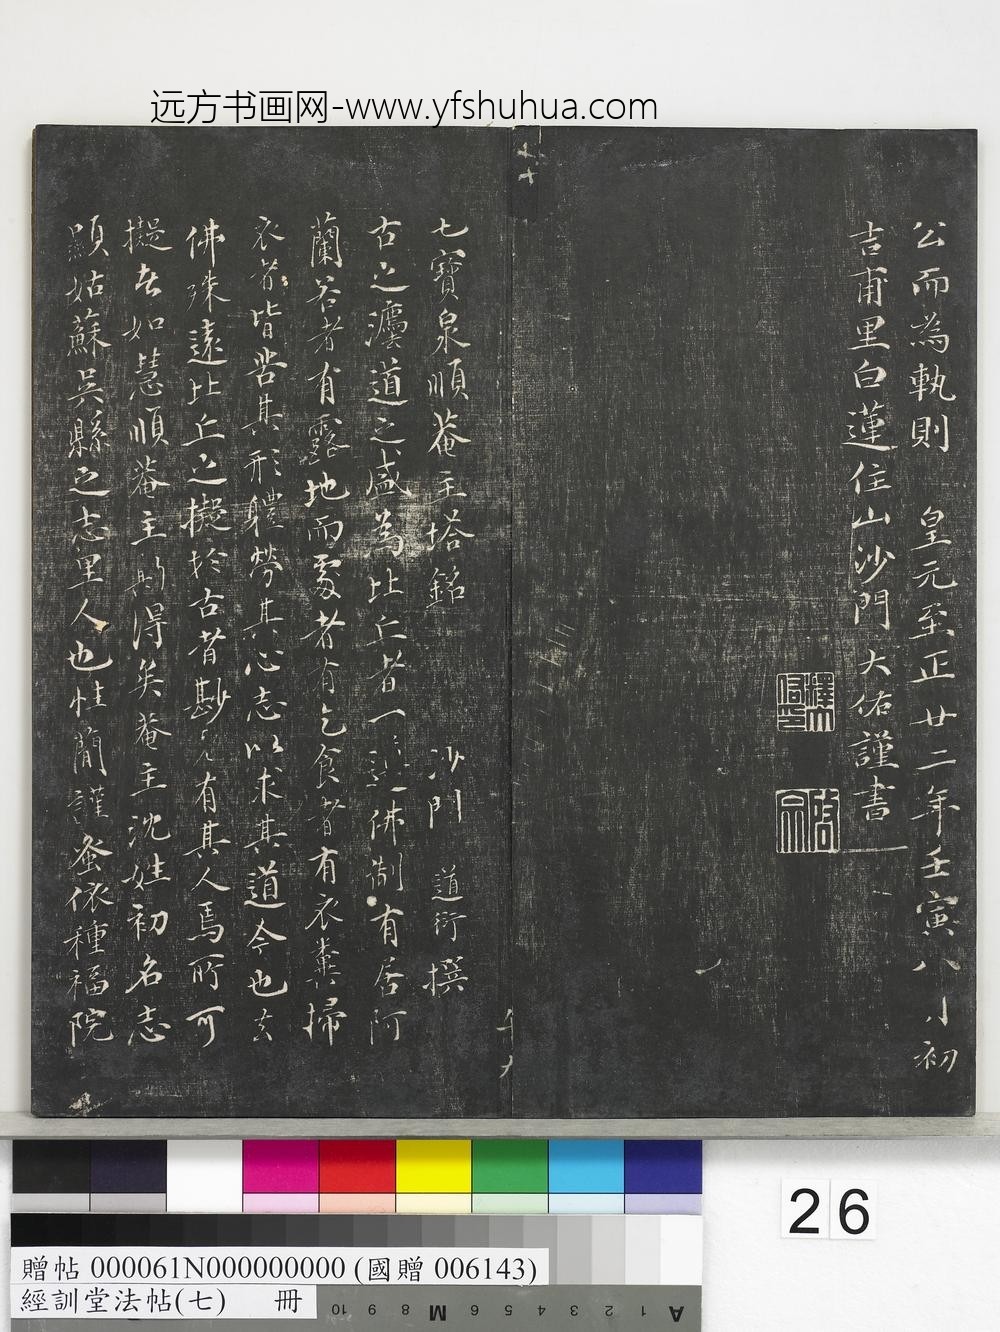 远方书画网-www.yfshuhua.com
公而為執則　皇元至正廿二年壬寅八月初
吉甫里白蓮住山沙門大佑謹書
七寶泉順菴主塔銘　沙門　道衍撰
古之濃道之盛為比丘者一遵佛制有居阿
蘭若者有露地而處者有乞食者有衣糞掃
衣者皆苦其形軆勞其心志以求其道今也去
佛殊遠比丘之擬於古者尠見有其人焉所可
擬者如慧順菴主所得矣菴主沈姓初名志
顯姑蘇吳縣之志里人也性簡謹蚤依種福院
26
贈帖 000061N000000000 (國贈 006143)
經訓堂法帖(七)　冊
10 9 8 M 6 5 4 3 2 1 A